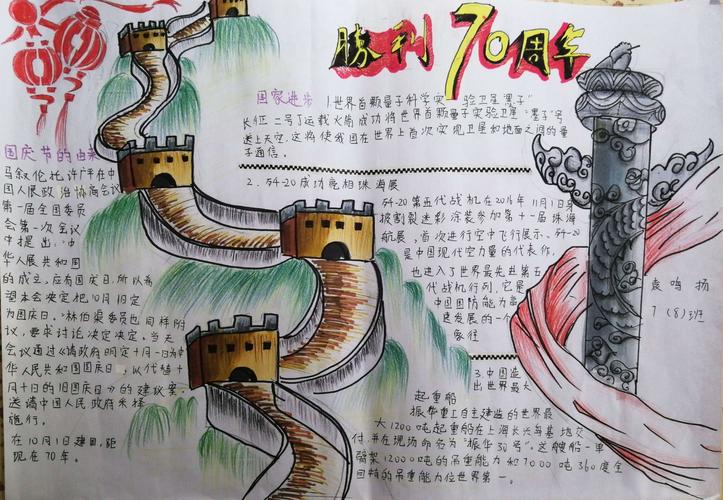 勝利70周年
国庆节的由来
马叙伦托许广平在中
国人民政治协商会议
第一届全国委员
会第一次会议
中提出,'中
华人民共和国
的成立,应有国庆日,所以希
望本会决定把10月1日定
为国庆日。'林伯渠委员也同样附
议,要求讨论决定决定。当天
会议通过《请政府明定十月一日为中
华人民共和国国庆日,以代替十
月十日的旧国庆日》的建议案,
送请中国人民政府采择
施行。
在10月1建国,距
现在70年。
国家进步 1世界首颗量子科学实 验卫星"墨子"
长征二号丁运载火箭成功将世界首颗量子实验卫星"墨子"号
送上天空,这将使我国在世界上首次实现卫星和地面之间的量
子通信。
2.歼-20成功亮相珠海展
歼-20第五代战机在2016年11月1日身
披割裂迷彩涂装参加第十一届珠海
航展,首次进行空中飞行展示、歼-20
是中国现代空力量的代表作,
也进入了世界最先进第五
代战机行列,它是
中国国防能力
建发展的一个
象征
3.中国造
出世界最大
起重船
振华重工自主建造的世界最
大1200吨起重船在上海长兴岛基地交
付,并在现场命名为"振华30号"。这艘船一单
臂架12000吨的吊重能力和7000吨360度全
回转的吊重能力位世界第一。
袁鸣扬
7(8)班